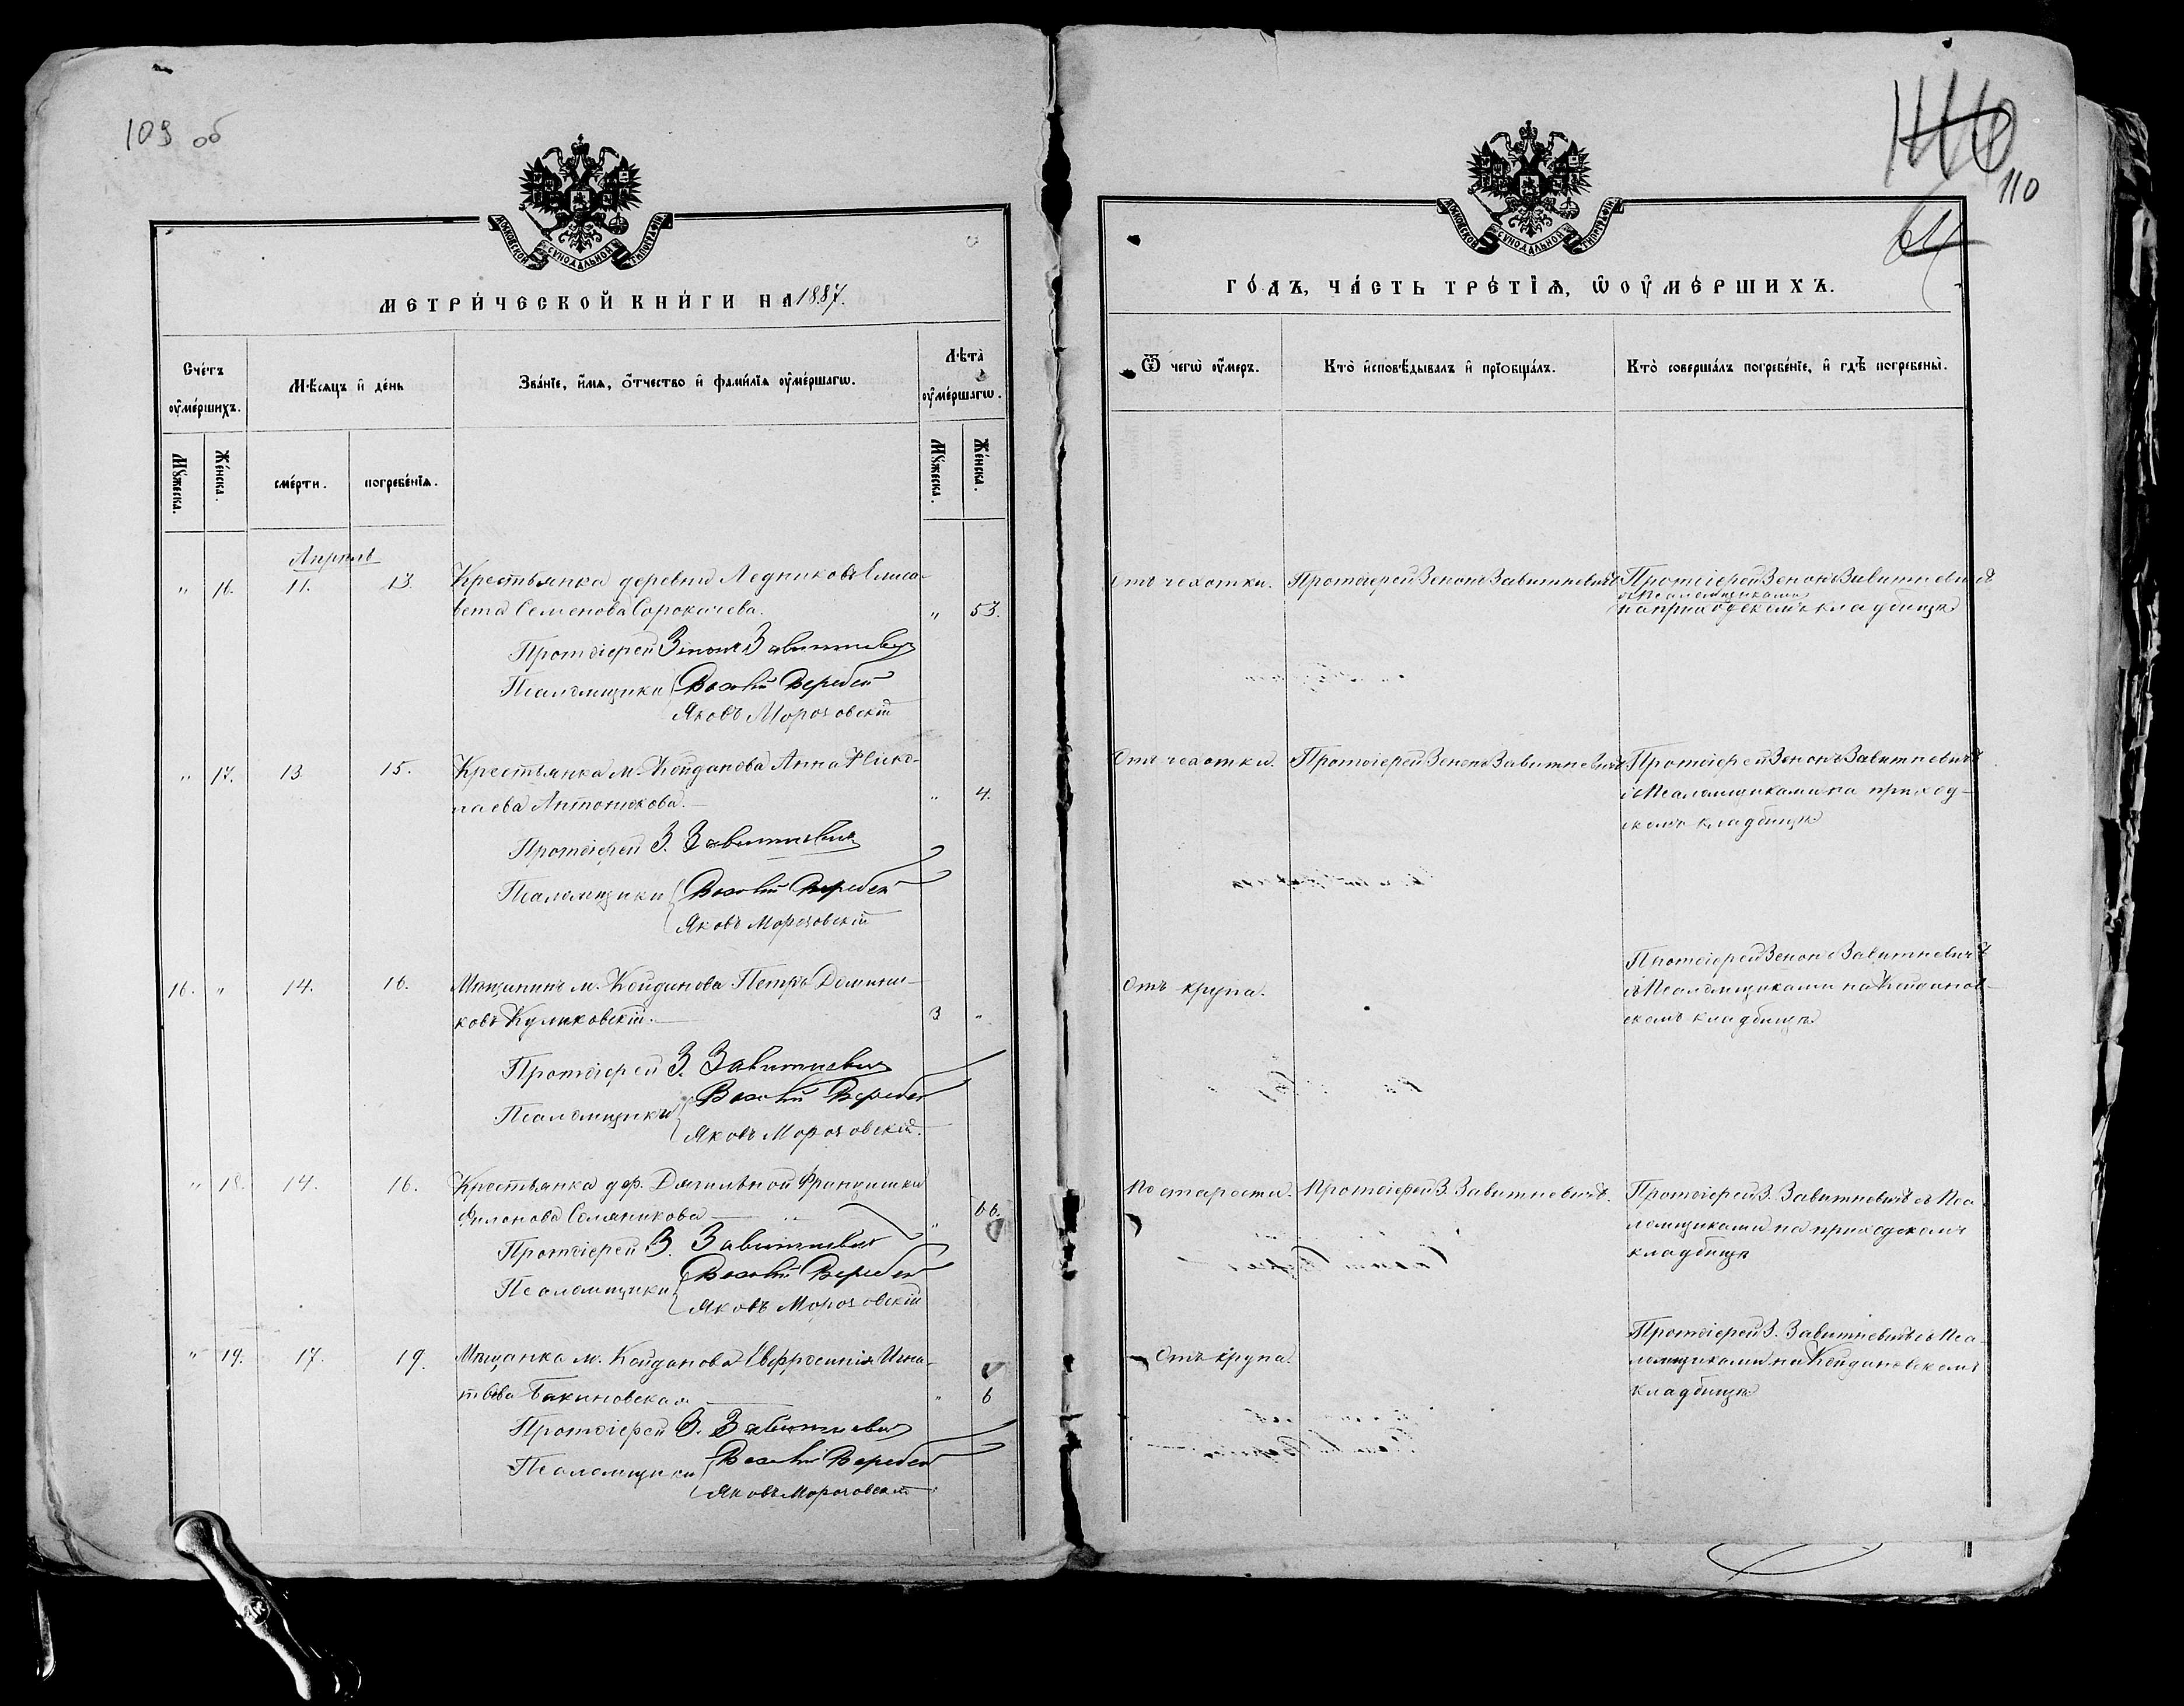 109 об
МОСКОВСКОЙ СѴНОДАЛЬНОЙ ТИПОГРАФІИ
МЕТРИ́ЧЕСКОЙ КНИ́ГИ НА 1887.
Сче́тъ ᲂу҆ме́ршихъ.
Мѣ́сяцъ и҆ де́нь
Зва́нїе, и҆́мѧ, ѻ҆́тчество и҆ фами́лїѧ ᲂу҆ме́ршагѡ.
Лѣ́та ᲂу҆ме́ршагѡ.
Мꙋ́жеска.
Же́нска.
сме́рти.
погребе́нїѧ.
Мꙋ́жеска.
Же́нска.
Апрѣль
" 16. 11. 13. Крестьянка деревни Ледниковъ Елиса-
вета Семенова Сорокачева. " 53.
Протоіерей Зенонъ Завитневич
Псаломщики Василій Веребей
Яковъ Морозовскій
" 17. 13. 15. Крестьянка м. Койданова Анна Нико-
лаева Антонюкова. " 4.
Протоіерей З. Завитневич
Псаломщики Василій Веребей
Яковъ Морозовскій
16. " 14. 16. Мѣщанинъ м. Койданова Петръ Домини-
ковъ Куликовскій. 3 "
Протоіерей З. Завитневич
Псаломщики Василій Веребей
Яковъ Морозовскій.
" 18. 14. 16. Крестьянка дер. Дягильной Францишка
Филонова Семяникова " 66.
Протоіерей З. Завитневич
Псаломщики Василій Веребей
Яковъ Морозовскій
" 19. 17. 19. Мѣщанка м. Койданова Евфросинія Игна-
тьева Бакиновская " 6
Протоіерей З. Завитневич
Псаломщики Василій Веребей
Яковъ Морозовскій
110
64
МОСКОВСКОЙ СѴНОДАЛЬНОЙ ТИПОГРАФІИ
ГО́ДЪ, ЧА́СТЬ ТРЕ́ТЇѦ, Ѡ ОУ҆МЕ́РШИХЪ.
Ѿ чегѡ̀ ᲂу҆́меръ.
Кто̀ и҆сповѣ́дывалъ и҆ прїѻбща́лъ.
Кто̀ соверша́лъ погребе́нїе, и҆ гдѣ̀ погребены̀.
Отъ чахотки. Протоіерей Зенонъ Завитневичъ Протоіерей Зенонъ Завитневичъ
съ Псаломщиками
на приходскомъ кладбищѣ
Отъ чахотки. Протоіерей Зенонъ Завитневичъ Протоіерей Зенонъ Завитневичъ
съ Псаломщиками на приход-
скомъ кладбищѣ
Отъ крупа. Протоіерей Зенонъ Завитневичъ
съ Псаломщиками на Койданов-
скомъ кладбищѣ
По старости. Протоіерей З. Завитневичъ. Протоіерей З. Завитневичъ съ Пса-
ломщиками на приходскомъ
кладбищѣ
Отъ крупа. Протоіерей З. Завитневичъ съ Пса-
ломщиками на Койдановскомъ
кладбищѣ